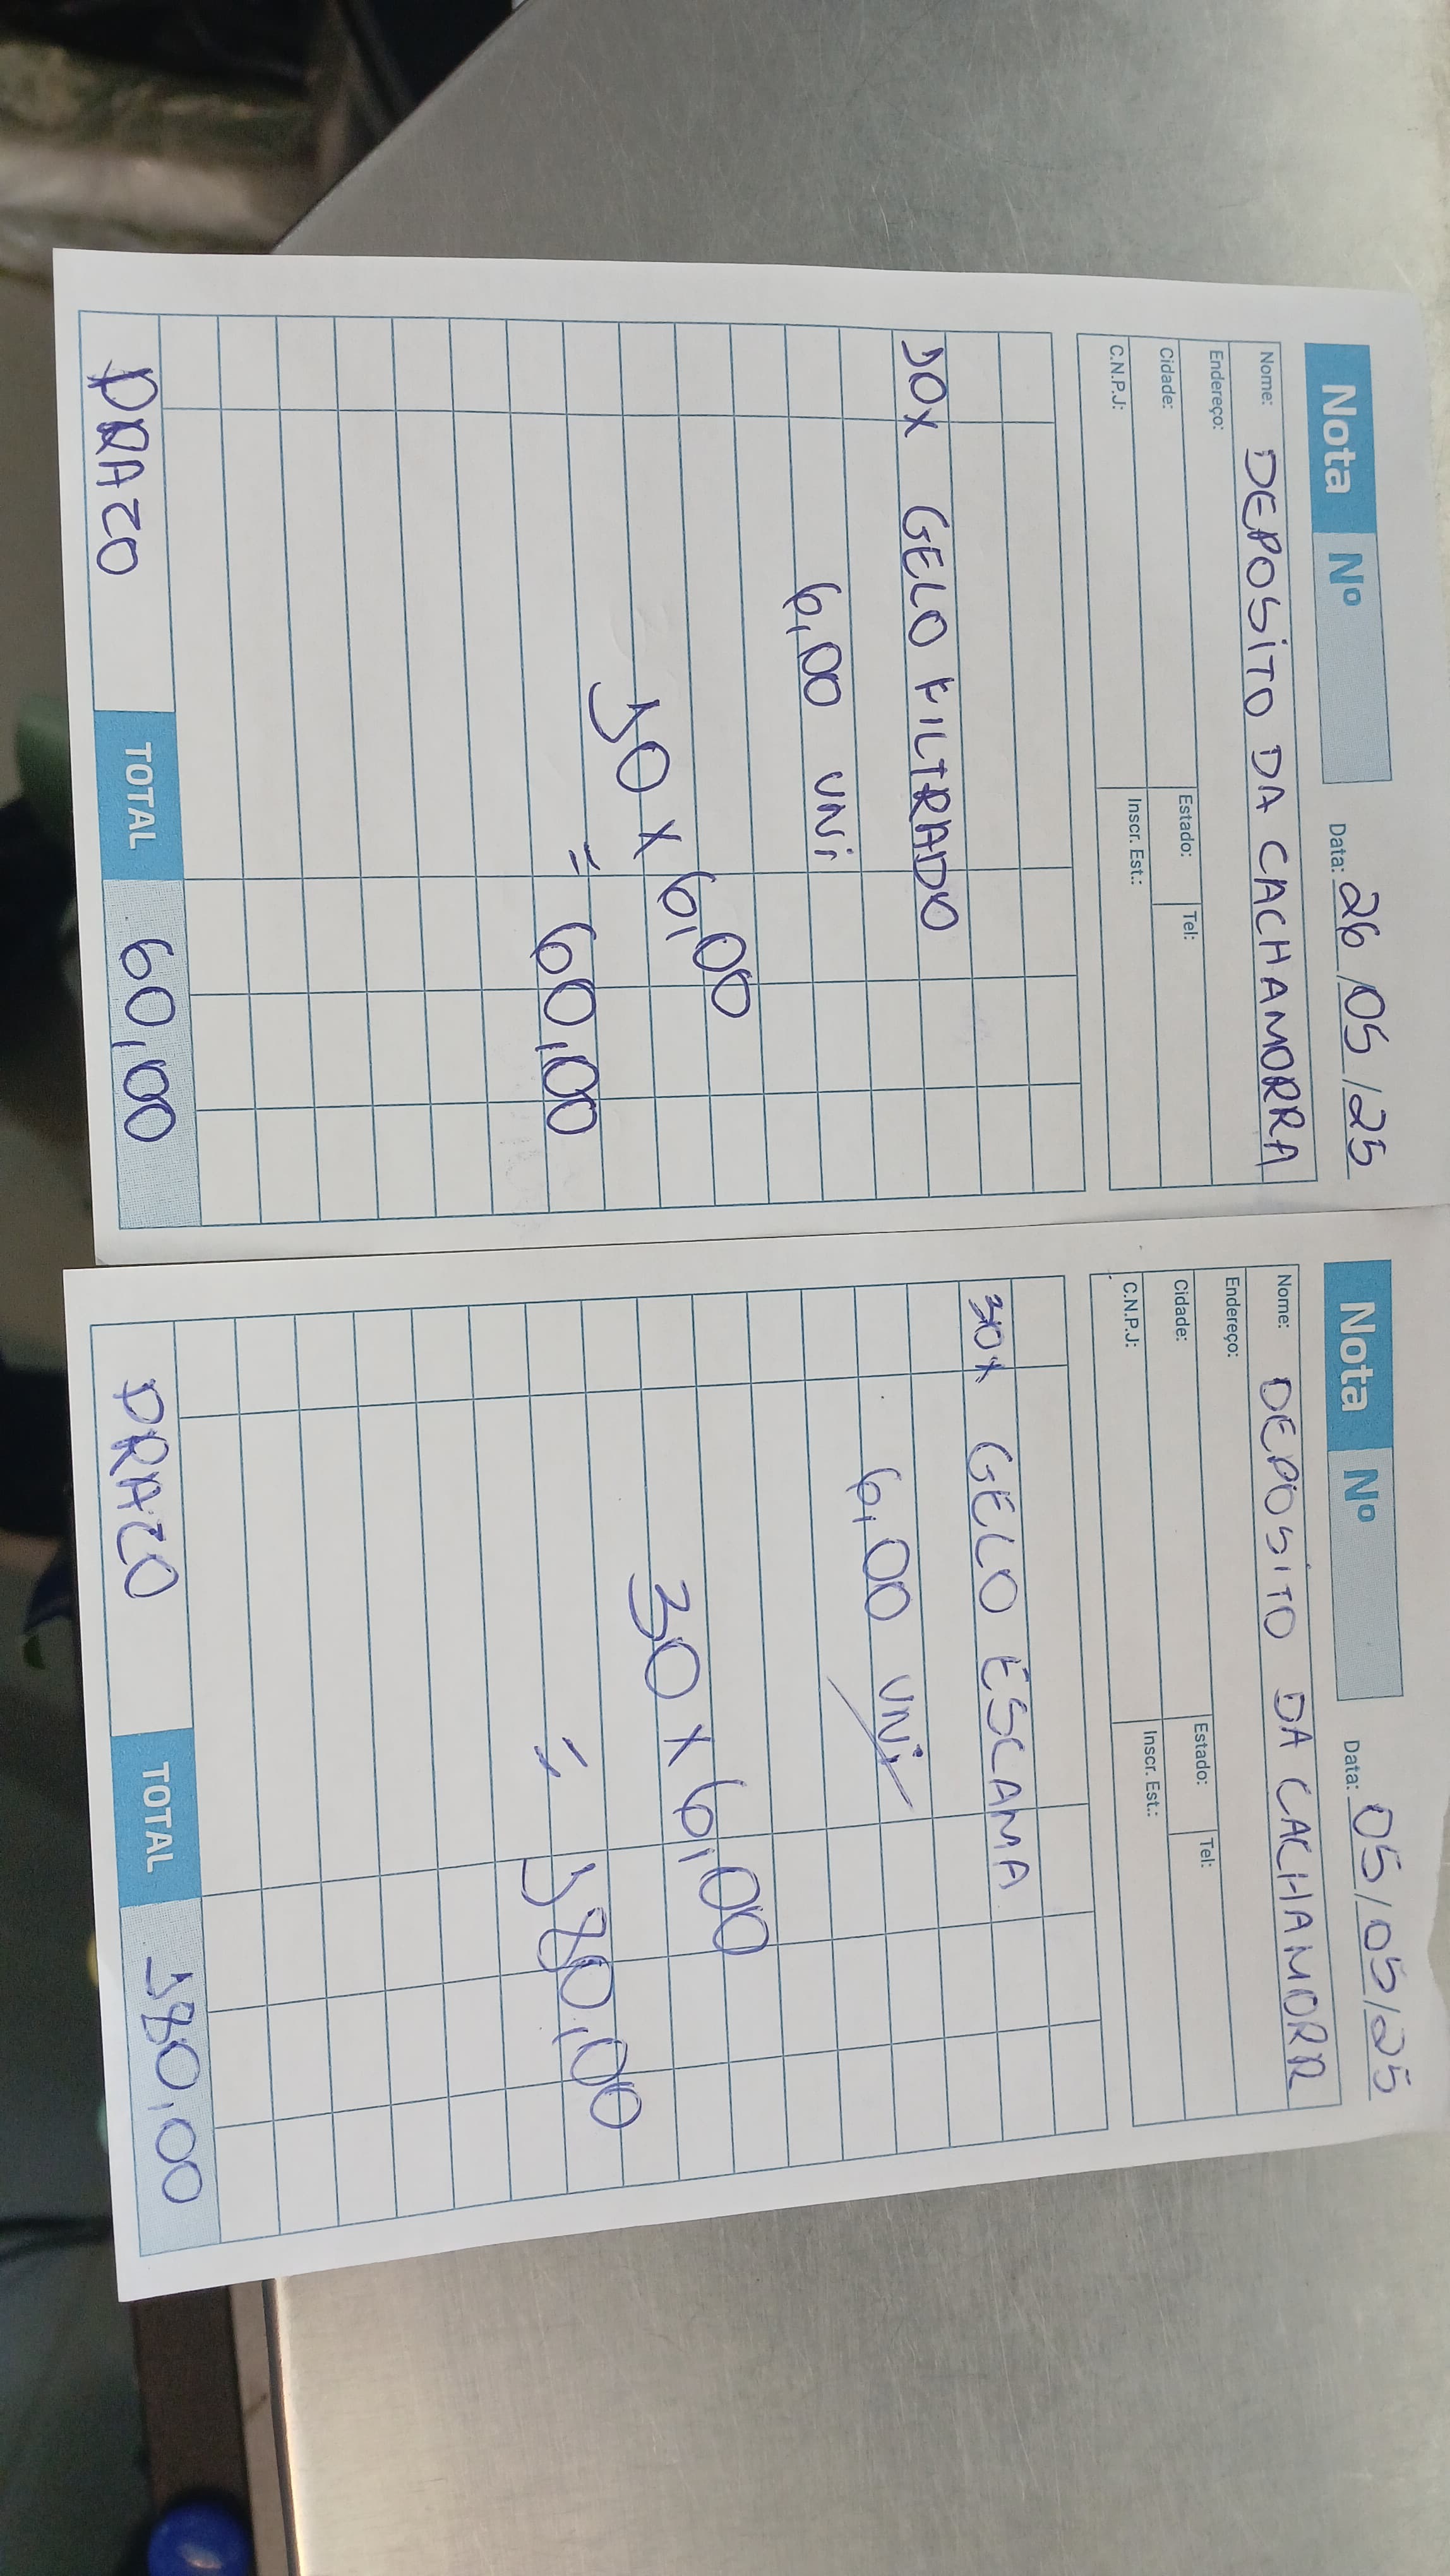 Nota Nº
Data: 26/05/25
Nome: DEPOSITO DA CACHAMORRA
Endereço:
Cidade: Estado: Tel:
C.N.P.J: Inscr. Est.:
10x GELO FILTRADO
6,00 UNI
10 x 6,00
= 60,00
PRAZO TOTAL 60,00
Nota Nº
Data: 05/05/25
Nome: DEPOSITO DA CACHAMORR
Endereço:
Cidade: Estado: Tel:
C.N.P.J: Inscr. Est.:
30x GELO ESCAMA
6,00 UNI
30 x 6,00
= 180,00
PRAZO TOTAL 180,00